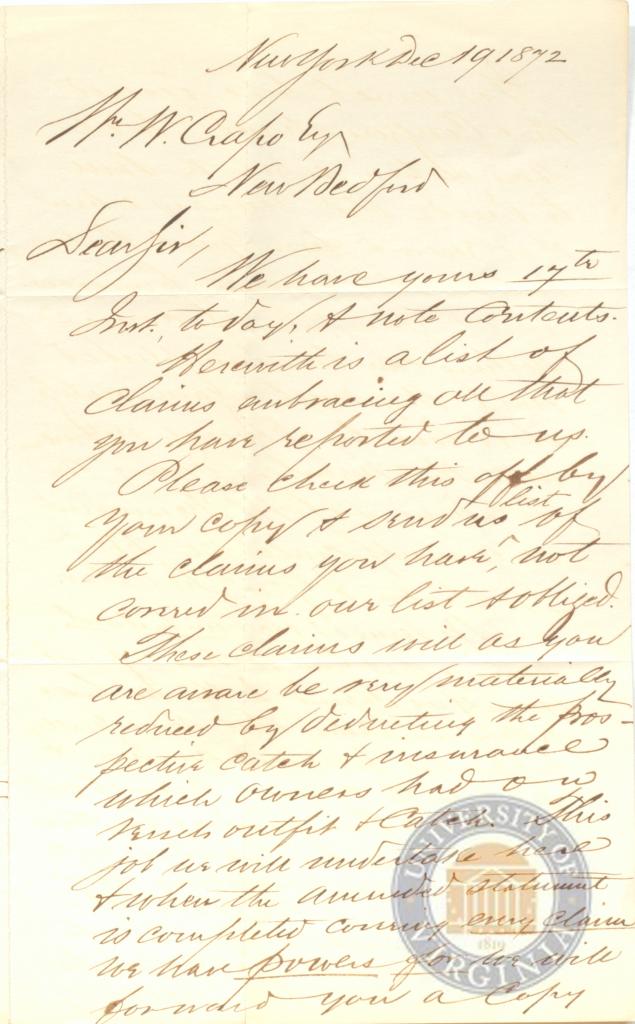 New York Dec 19 1872
Wm. W. Crapo Esq
New Bedford
Dear Sir,
We have yours 17th
Inst, to day, & note contents.
Herewith is a list of
claims embracing all that
you have reported to us.
Please check this off by
your copy & send us list of
the claims you have, not
covered in our list & oblige.
These claims will as you
are aware be very materially
reduced by deducting the pros-
pective catch & insurance
which owners had on
vessels outfit & catch. This
job we will undertake here
& when the amended statement
is completed covering every claim
we have powers for we will
forward you a copy
UNIVERSITY OF VIRGINIA
1819